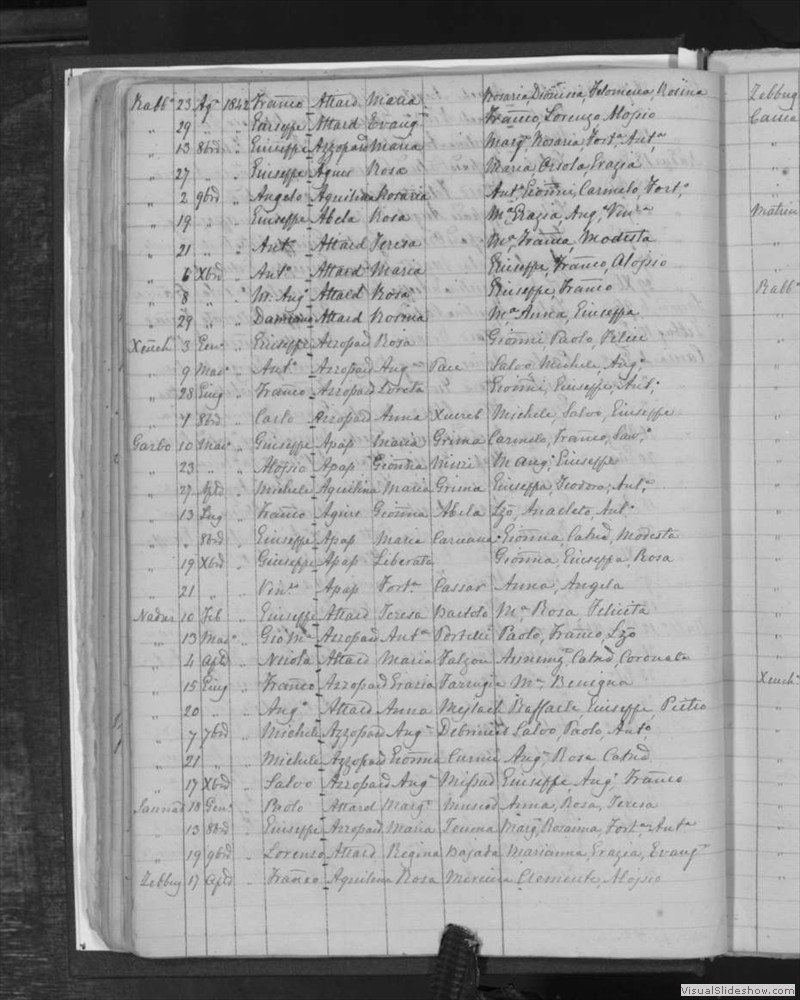 Rabbº 23 Agº 1842 Franco Attard Maria Rosaria, Dionisia, Filomena, Rosina
" 29 " " Giuseppe Attard Evangª Franco, Lorenzo Alojsio
" 13 8bre " Giuseppe Azzopard Maria Margª Rosaria, Fortª Antª
" 27 " " Giuseppe Agius Rosa Maria Orsola, Grazia
" 2 9bre " Angelo Aquilina Rosaria Antº Gionni, Carmelo, Fortº
" 19 " " Giuseppe Abela Rosa Mª Grazia, Angª
" 21 " " Antº Attard Teresa Mª Franca Modesta
" 6 Xbre " Antº Attard Maria Giuseppe, Franco, Alojsio
" 8 " " Angº Attard Rosa Giuseppe, Franco
" 29 " " Damiano Attard Rosina Mª Anna, Giuseppa
Xeuch 3 Genº " Giuseppe Azzopard Rosa Gionni Paolo, Felice
" 9 Magº " Antº Azzopard Angª Pace Salvo Michele, Angº
" 28 Giug " Franco Azzopard Loreta Gionni, Giuseppe, Antº
" 1 8bre " Carlo Azzopard Anna Xuereb Michele, Salvo, Giuseppe
Garbo 10 Magº " Giuseppe Apap Maria Grima Carmelo, Franco, Savº
" 23 " " Alojsio Apap Gionna Mizzi M Angª Giuseppe
" 27 Aple " Michele Aquilina Maria Grima Giuseppa, Teodora, Antª
" 13 Lug " Franco Agius Gionna Abela Lzo, Anacleto, Antº
" " 8bre " Giuseppe Apap Maria Caruana Gionna, Catnª, Modesta
" 19 Xbre " Giuseppe Apap Liberata Gionna, Giuseppa, Rosa
" 21 " " Vinzº Apap Fortª Cassar Anna, Angela
Nadur 10 Feb " Giuseppe Attard Teresa Bartolo Mª Rosa Felicita
" 13 Magº " Gio Mª Azzopard Antª Portelli Paolo, Franco, Lzo
" 4 Aple " Nicola Attard Maria Falzon Annunzª Catnª, Coronata
" 15 Giug " Franco Azzopard Grazia Farrugia Mª Benigna
" 20 " " Angº Attard Anna Mejlach Raffaele Giuseppe Pietro
" 7 7bre " Michele Azzopard Angª Debrincat Salvo, Paolo, Antº
" 21 " " Michele Azzopard Gionna Curmi Angª Rosa Catnª
" 17 Xbre " Salvo Azzopard Angª Mifsud Giuseppe, Angº, Franco
Sannat 18 Genº " Paolo Attard Margª Muscat Anna, Rosa, Teresa
" 13 8bre " Giuseppe Azzopard Maria Teuma Margª Rosanna, Fortª Antª
" 19 9bre " Lorenzo Attard Regina Bajada Marianna Grazia, Evangª
Zebbug 17 Aple " Franco Aquilina Rosa Mercieca Clemente, Alojsio
Zebbug
"
"
Rabbº
Xeuch
VisualSlideshow.com